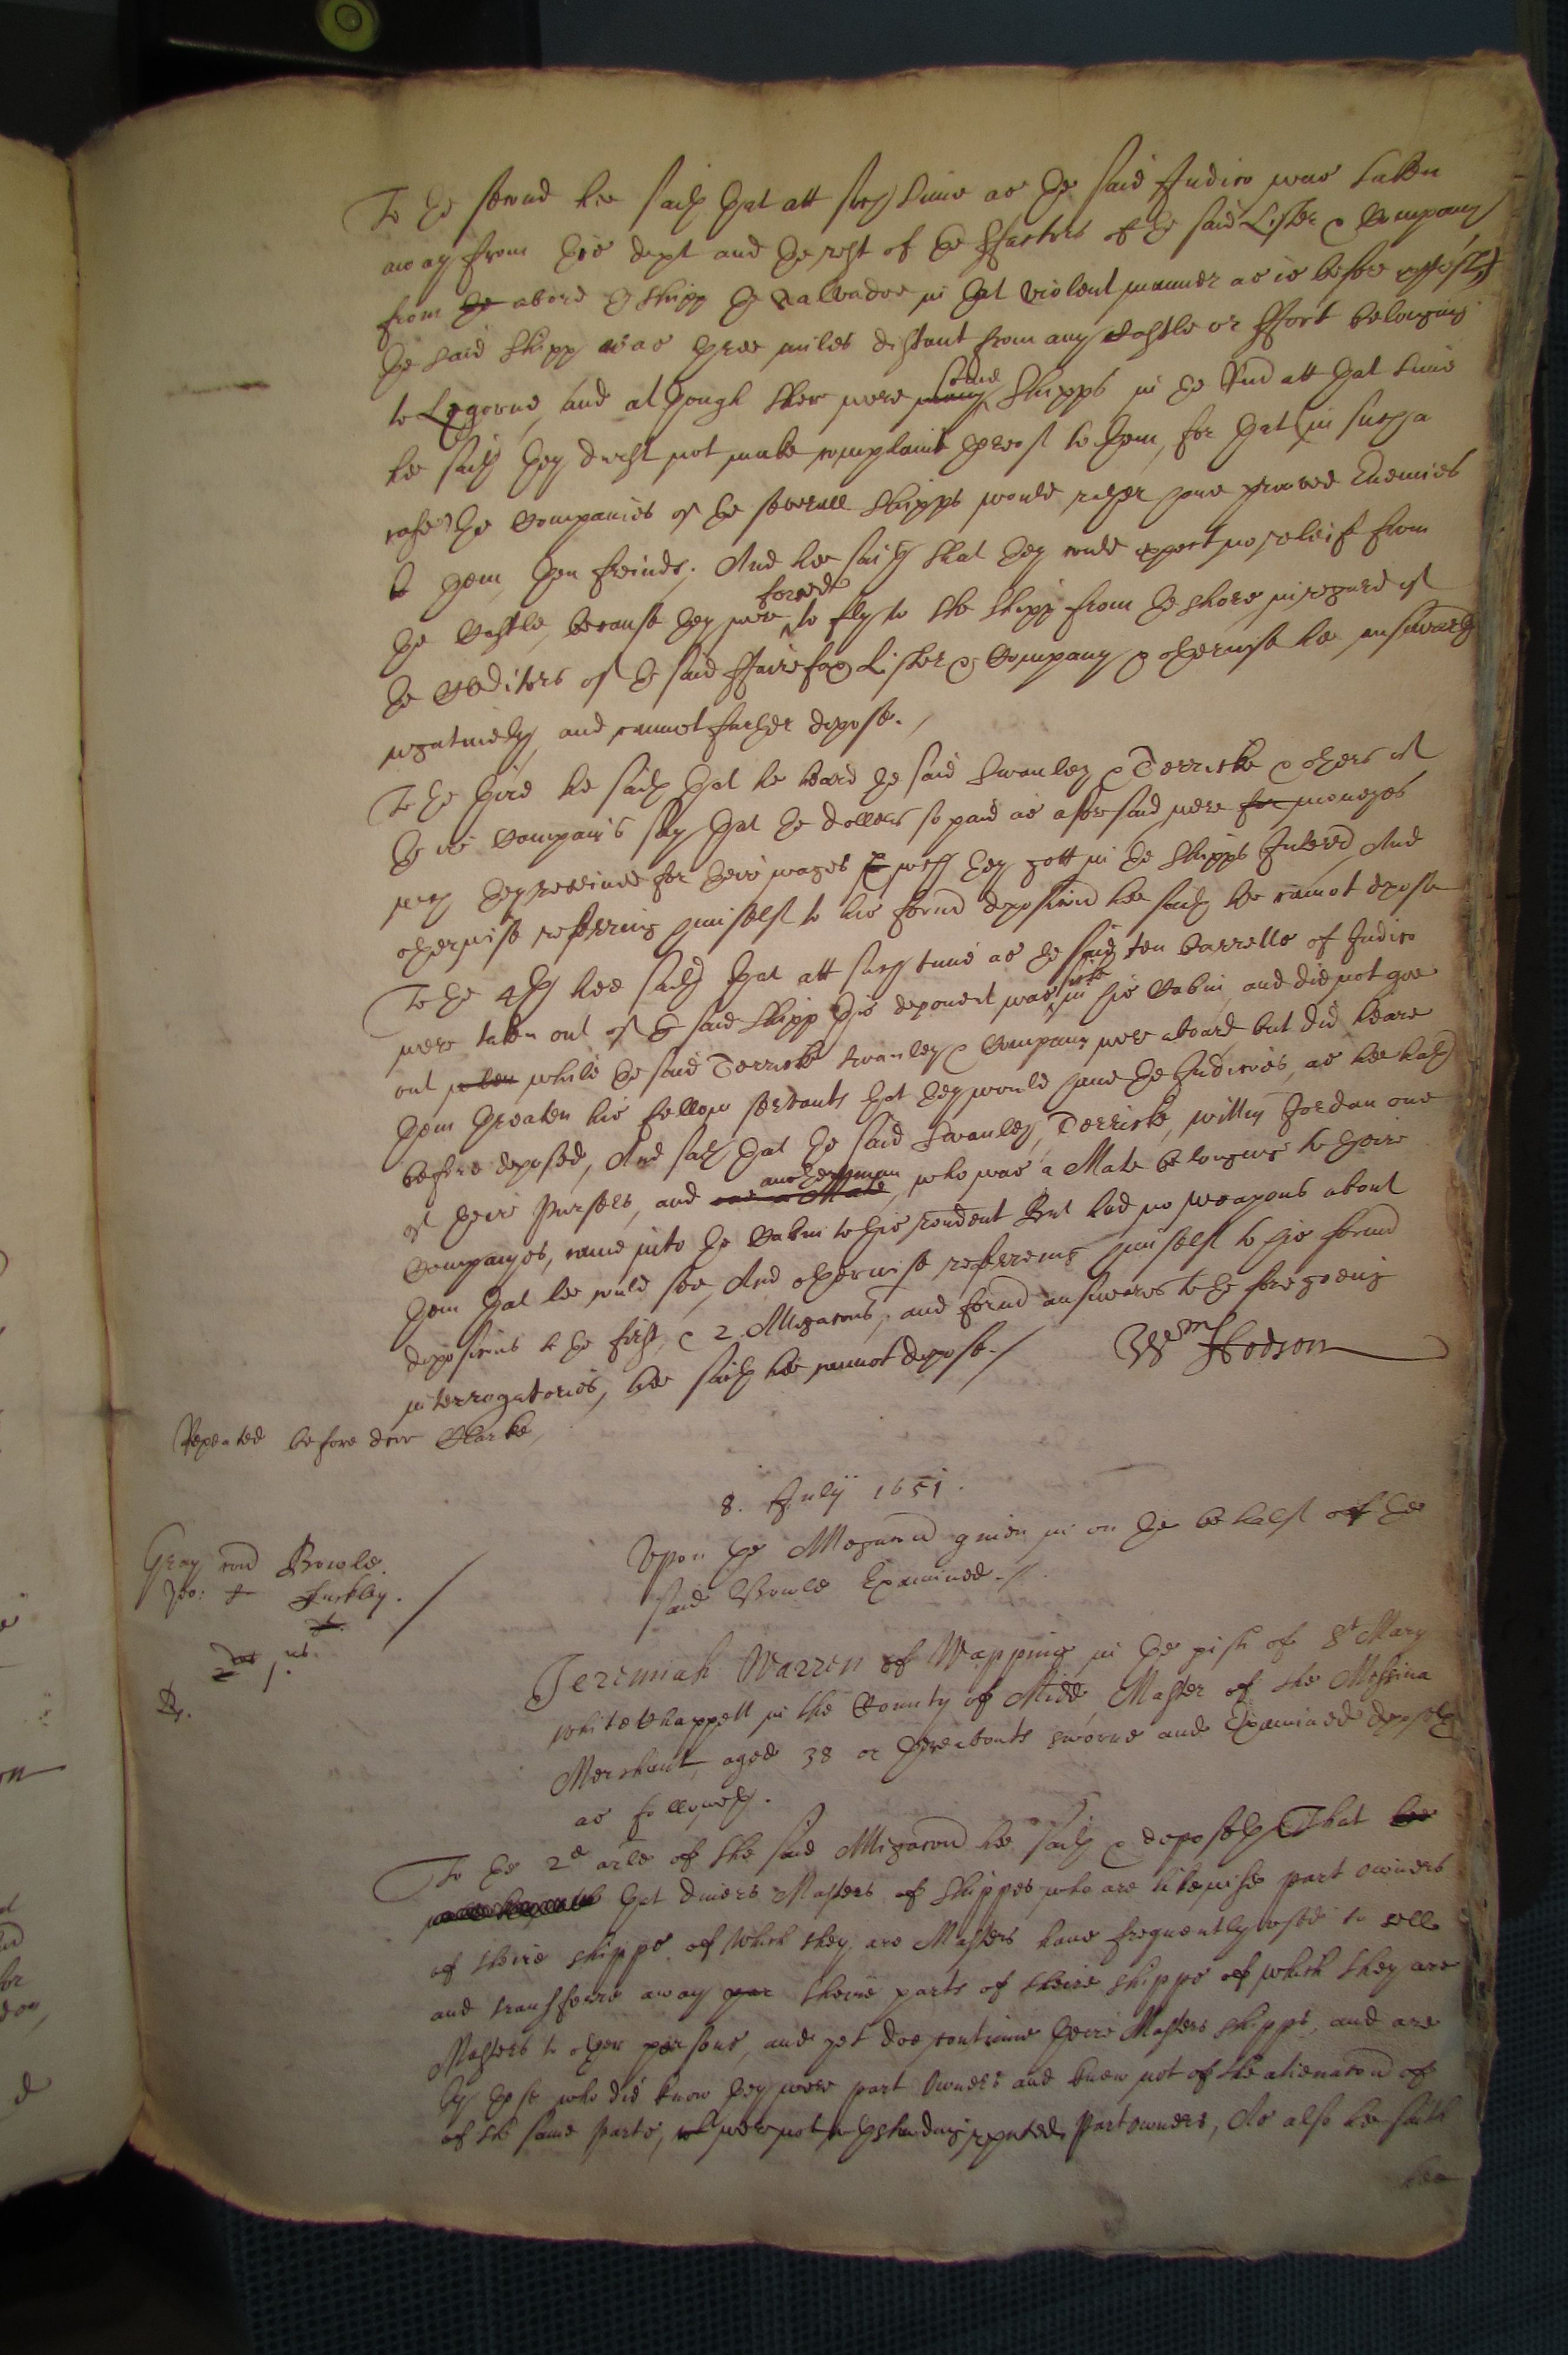 To the second hee saith that att such time as the said Indico was taken
away from this dept and the rest of the ffactors of the said Lister & Company
from the aboard the shipp the Salvadore in that violent manner as is before
the said shipp was three miles distant from any Castle or ffort belonging
to Legorne, and although there were many some shipps in the Rood att that time
hee saith they durst not make complaint thereof to them, for that in such a
case the Companies of the severall shipps would rather have prooved Enemies
to them then freinds. And hee saith that they could expect no releif from
the Castle, because they were forced to fly to the shipp from the shore in regard of
the Creditors of the said ffairefax Lister & Company & otherwise hee answereth
negatively, and cannot further depose./
To the third he saith that he heard the said Swanley & Derricke & others of
their Companies say that the dollers so paid as aforesaid were for moneyes
which they received for their wages which they gott in the shipps And
otherwise referring himself to his former deposition hee saith hee cannot depose
To the 4th hee saith that att such time as the said ten barrells of Indico
were taken out of the said shipp this deponent was sicke in his Cabin, and did not goe
out when while the said Derricke Swanley & Company were aboard but did heare
them threaten his fellow servants that they would have the Indicoes, as hee hath
before deposed, And saith that the said Swanley, Derricke, Jordan one
of their Pursers, and one a Mate another man, who was a Mate belonging to their
Companyes, came into the Cabin to this rendent But had no weapons about
them that hee could see, And otherwise referring himself to his formr
depositions to the first, & 2. Allegacons, and formr answeares to the foregoeing
interrogatories, hee saith hee cannot depose./
Wm Hodson
Repeated before dcor Clarke,
8. July 1651.
Gray cond Bowle.
Suckley.
Upon the Allegacon given in on the behalf of the
said Bowle Examined./
2us
Jeremiah Warren of Wapping in the pish of St Mary
white Chappell in the County of Midd Master of the Messina
Merchant, aged 38 or thereabouts sworne and Examined deposeth
as followeth.
To the 2d arle of the said Allegacon hee saith & deposeth That hee
that divers Masters of shippes who are likewise part owners
of theire shipps of which they are Masters have frequently used to sell
and transferre away theire parts of theire shipps of which they are
Masters to other persons, and yet doe continue theire Masters shipps, and are
by those who did know they were part Owners and knew not of the alienacon of
of the same parts, notwthstanding reputed Part owners, As also he saith
hee